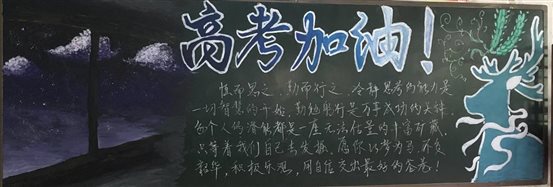 高考加油!
慎而思之,勤而行之,冷静思考的能力是
一切智慧的开始,勤勉躬行是万事成功的关键
每个人的潜能都是一座无法估量的丰富矿藏,
只等着我们自己去发掘。愿你以梦为马,不负
韶华,积极乐观,用自信交出最好的答卷!